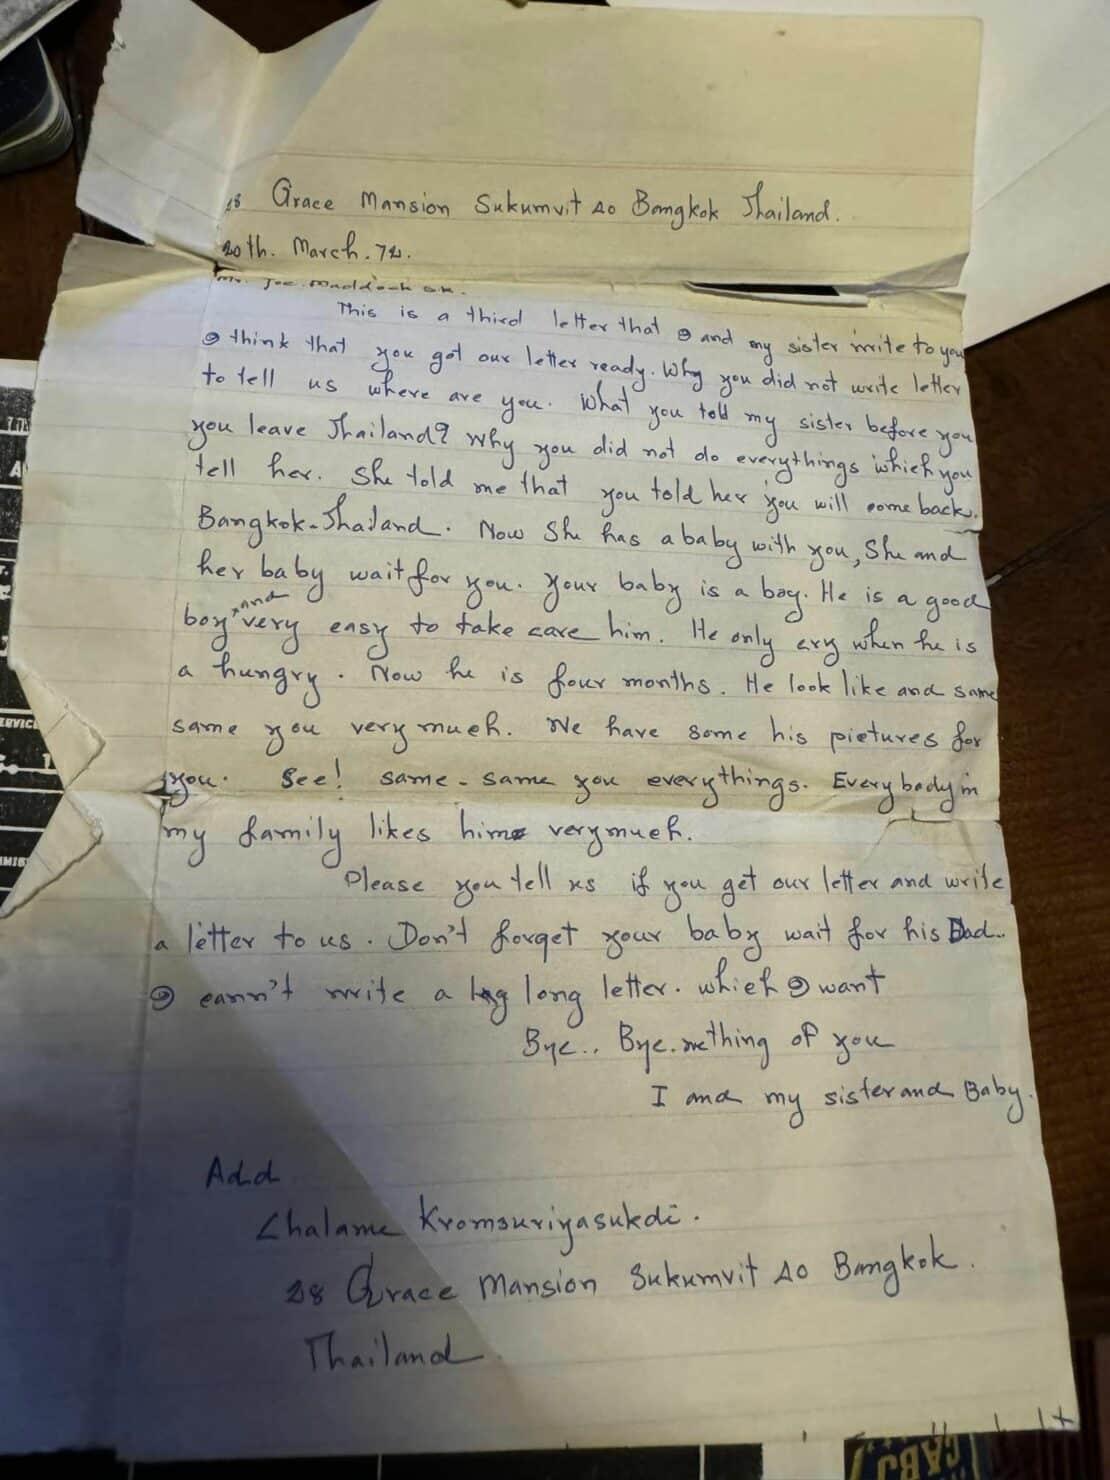 28 Grace Mansion Sukumvit 20 Bangkok Thailand.
20th. March. 72.
Mr. Joe. Maddock sr.
This is a third letter that I and my sister write to you
I think that you got our letter ready. Why you did not write letter
to tell us where are you. What you told my sister before you
you leave Thailand? Why you did not do everythings which you
tell her. She told me that you told her you will come back.
Bangkok-Thailand. Now She has a baby with you, She and
her baby wait for you. Your baby is a boy. He is a good
boy and very easy to take care him. He only cry when he is
a hungry. Now he is four months. He look like and same
same you very much. We have some his pictures for
you. See! same - same you everythings. Everybody in
my family likes him very much.
Please you tell us if you get our letter and write
a letter to us. Don't forget your baby wait for his Dad..
I cann't write a long letter. which I want
Bye.. Bye. of you
I and my sister and Baby.
Add
Chalame Kromsuriyasukdi.
28 Grace Mansion Sukumvit 20 Bangkok.
Thailand